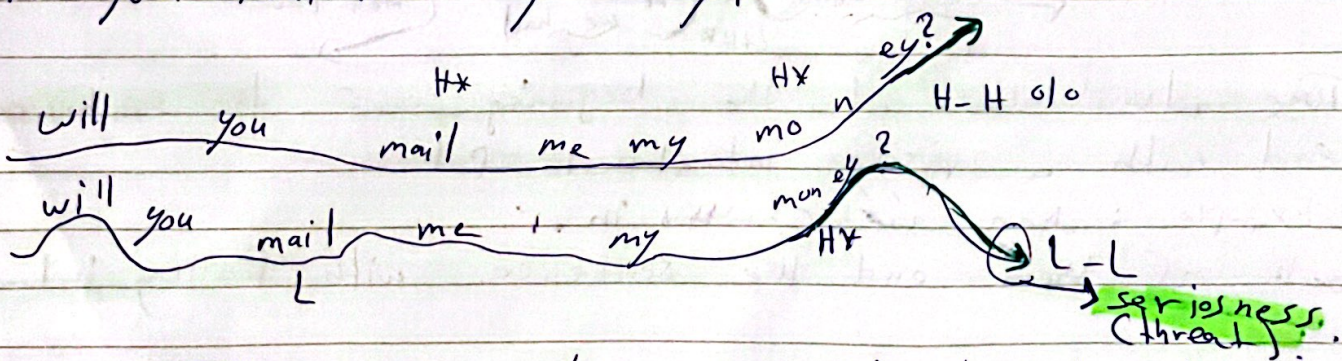 H* H*
will you mail me my mo n ey? H-H %
will you mail me my mon ey ?
L H* L-L
seriosness.
(threat)